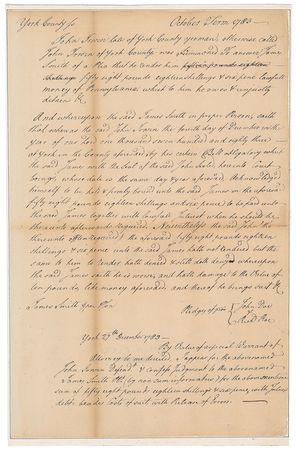 York County ss October Term 1783
John Toven late of York County yeoman, otherwise called
John Toven of York County was Summoned To answer James
Smith of a Plea that he render him
shillings fifty eight pounds eighteen shillings & six pence lawfull
money of Pennsylvania which to him he owes & unjustly
detains &c
And whereupon the said James Smith in proper Person, saith
that whereas the said John Toven the fourth day of December in the
year of our Lord one thousand seven hundred and eighty three
at York in the County aforesaid by his certain Bill obligatory which
the said James with the Seal of the said John Sealed here into Court
brings, whose date is the same day & year aforesaid Acknowledged
himself to be held & firmly bound unto the said James in the aforesaid
fifty eight pounds eighteen shillings and six pence to be paid unto
the said James together with lawfull Interest when he should be
thereunto afterwards required. Nevertheless the said John tho
thereunto often required the aforesaid fifty eight pounds eighteen
shillings & six pence unto the said James hath not rendered but the
same to him to render hath denied & still doth deny whereupon
the said James saith he is worse, and hath damage to the Value of
ten pounds, like money aforesaid and thereof he brings suit &c
James Smith
Pledges of pros John Doe
Richd Roe
York 27th December 1783
By Virtue of a special Warrant of
Attorney to me directed, I appear for the abovenamed
John Toven Defendt & confess Judgment to the abovenamed
James Smith Plt (by non sum informatus) for the above mentioned
sum of fifty eight pounds eighteen shillings & six pence, with Interest
debt, besides Costs of suit with Release of Errors